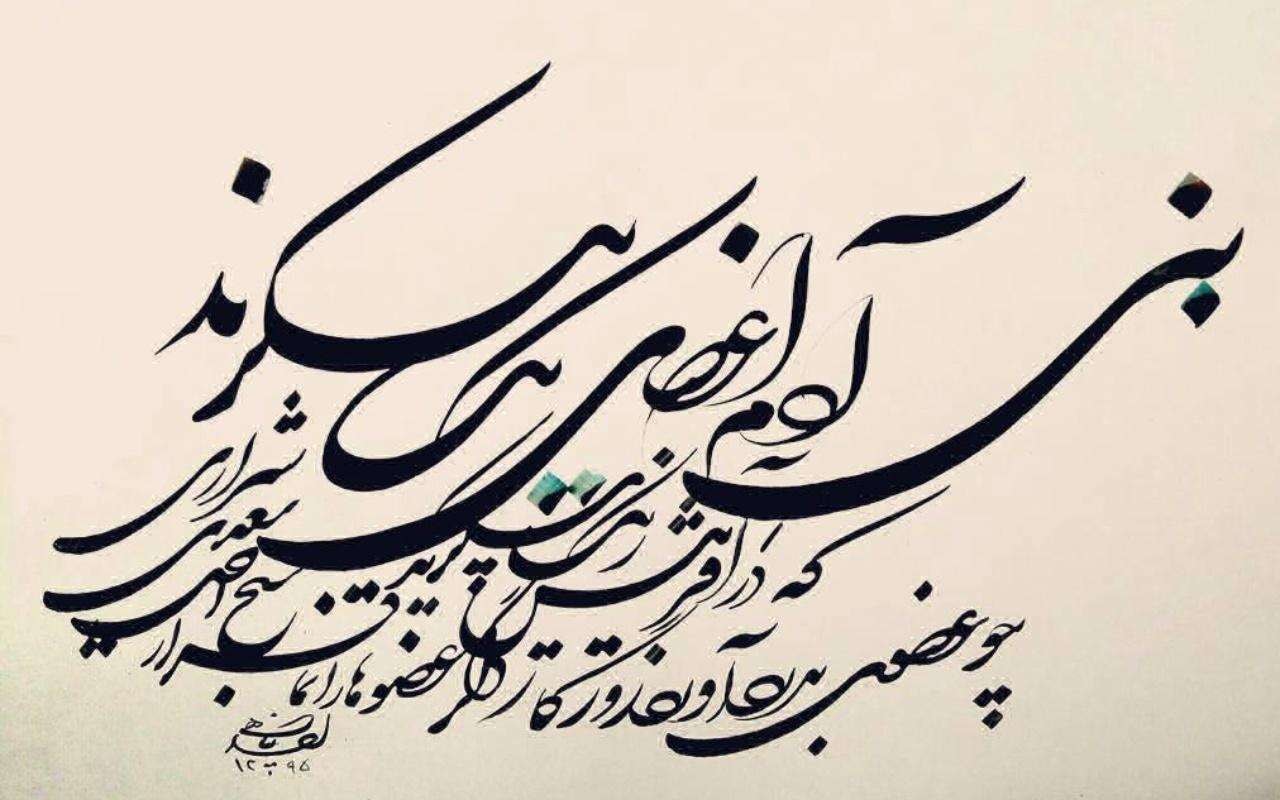 بنی آدم اعضای یکدیگرند
که در آفرینش ز یک گوهرند
چو عضوی بدرد آورد روزگار
دگر عضوها را نماند قرار
شیخ اجل سعدی شیرازی
۱۲ ۹۵